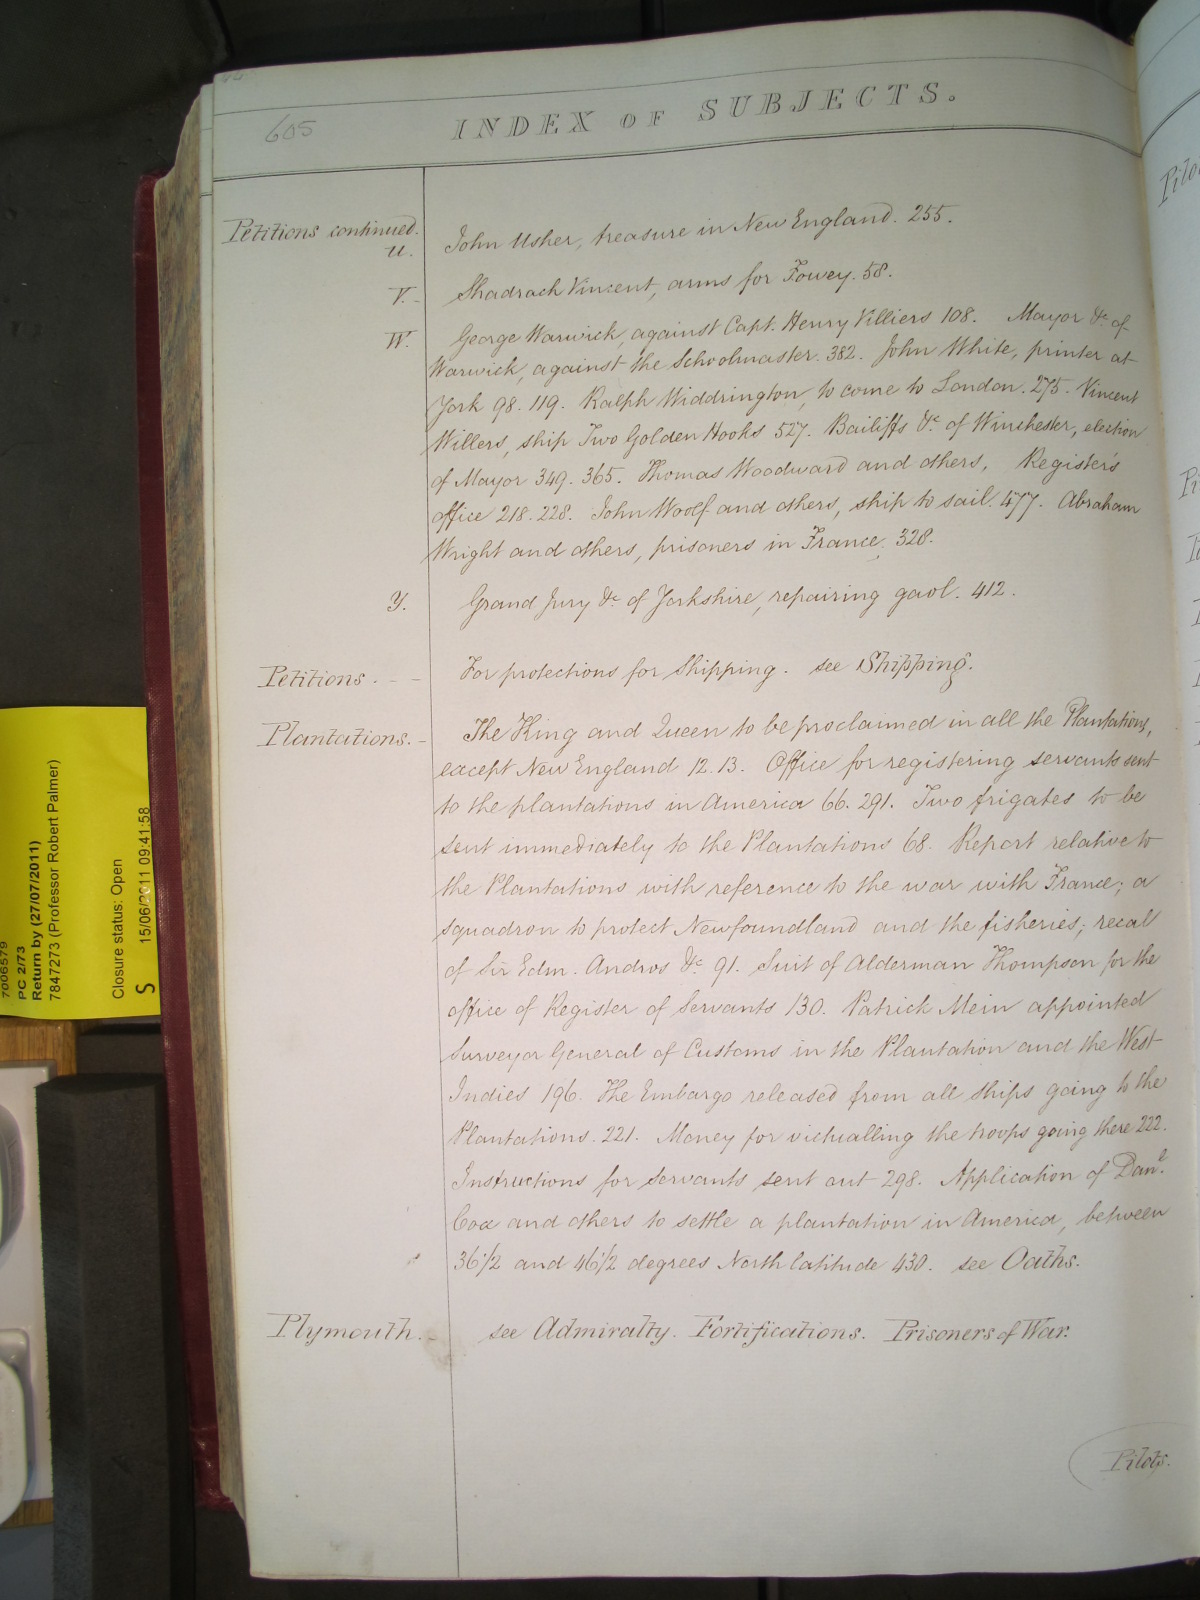 605
INDEX OF SUBJECTS.
Petitions continued.
U. John Usher, treasure in New England. 255.
V. Shadrach Vincent, arms for Fowey. 58.
W. George Warwick, against Capt. Henry Villiers 108. Mayor &c of
Warwick, against the Schoolmaster. 382. John White, printer at
York 98. 119. Ralph Widdrington, to come to London. 275. Vincent
Willers, ship Two Golden Hooks 527. Bailiffs &c of Winchester, election
of Mayor 349. 365. Thomas Woodward and others, Register's
office 218. 228. John Woolf and others, ship to sail. 477. Abraham
Wright and others, prisoners in France. 328.
Y. Grand Jury &c of Yorkshire, repairing gaol. 412.
Petitions. - - For protections for Shipping. see Shipping.
Plantations. - The King and Queen to be proclaimed in all the Plantations,
except New England 12. 13. Office for registering servants sent
to the plantations in America 66. 291. Two frigates to be
sent immediately to the Plantations 68. Report relative to
the Plantations with reference to the war with France; a
squadron to protect Newfoundland and the fisheries; recal
of Sir Edm. Andros &c 91. Suit of Alderman Thompson for the
office of Register of Servants 130. Patrick Mein appointed
Surveyor General of Customs in the Plantation and the West
Indies 196. The Embargo released from all ships going to the
Plantations. 221. Money for victualling the troops going there 222.
Instructions for servants sent out 298. Application of Danl.
Cox and others to settle a plantation in America, between
36 1/2 and 46 1/2 degrees North latitude 430. see Oaths.
Plymouth. - see Admiralty. Fortifications. Prisoners of War.
Pilots.
7006579
PC 2/73
Return by (27/07/2011)
7847273 (Professor Robert Palmer)
Closure status: Open
S 15/06/2011 09:41:58